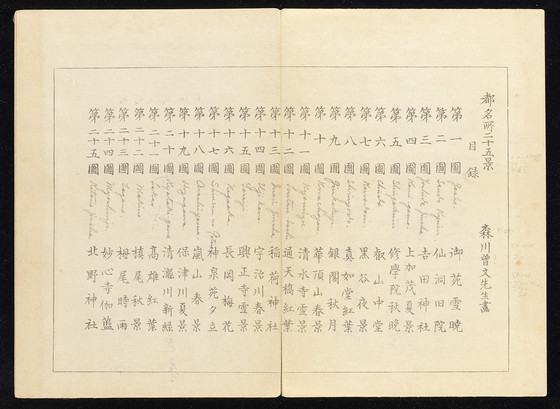 都名所二十五景
目錄
森川曾文先生畵
第一圖 Gosho. 御苑雪曉
第二圖 仙洞旧院
第三圖 Yoshida jinsha 吉田神社
第四圖 上加茂夏景
第五圖 Shugakuin 修學院秋晚
第六圖 Chudo 叡山中堂
第七圖 Kurodani 黒谷夜景
第八圖 Shinnyodo 真如堂紅葉
第九圖 Ginkakuji 銀閣秋月
第十圖 華頂山春景
第十一圖 Kiyomizu 清水寺雪景
第十二圖 通天橋紅葉
第十三圖 Inari jinsha 稲荷神社
第十四圖 Uji kawa 宇治川春景
第十五圖 興正寺雪景
第十六圖 Nagaoka 長岡梅花
第十七圖 神泉苑夕立
第十八圖 Arashiyama 嵐山春景
第十九圖 保津川夏景
第二十圖 Kiyotakigawa 清瀧川新緑
第二十一圖 Takao 高雄紅葉
第二十二圖 槙尾秋景
第二十三圖 栂尾時雨
第二十四圖 Myoshinji 妙心寺伽藍
第二十五圖 Kitano jinsha 北野神社